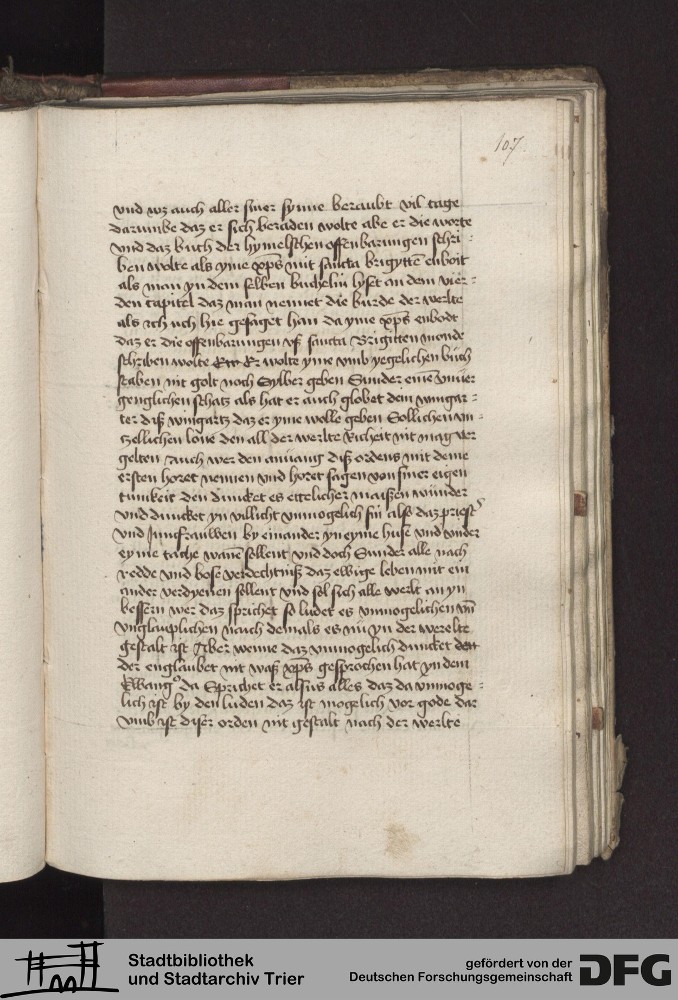 107
vnd wz auch aller siner synne beraubt vil tage
darumbe daz er sich beraden wolte abe er die worte
vnd daz buch der hymelschen offenbarungen schri-
ben wolte als yme xp̄s mit sancta brigyttē enboit
als man yn dem selben buchelin lyset an dem vier-
den capitel daz man nennet die burde der werlte
als ich uch hie gesaget han da yme xp̄s enbodt
daz er die offenbarungen vß sancta Brigitten monde
schriben wolte Er wolte yme vmb yegelichen buch
staben nit golt noch Sylber geben Sunder einē vnuer
genglichen schatz als hat er auch globet dem wingar-
ter diß wingartz daz er yme wolle geben Sollichen vn-
zellichen lone den all der werlte Richeit nit mag ver
gelten Auch wer den anuang diß ordens mit deme
ersten horet nennen vnd horet sagen von siner eigen
tumkeit den duncket es ettelicher maißen wunder
vnd duncket yn villicht vnmogelich sin also daz priest
vnd Junfrauwen by einander yn eyme huse vnd vnder
eyme tache wanē sollent vnd doch Sunder alle nach
redde vnd bose verdechtniß daz ewige leben mit ein
ander verdyenen sollent vnd sol sich alle werlt an yn
bessern wer daz sprichet so ludet es vnmogelichen vn̄
vnglauplichen nach demals es nu yn der werelte
gestalt ist Aber wenne daz vnmogelich duncket
der englaubet nit waß xp̄s gesprochen hat yn dem
Ewang° da Sprichet er alsus alles daz da vnmoge-
lich ist by den luden daz ist mogelich vor gode dar
vmb ist diser orden nit gestalt nach der werlte
Stadtbibliothek
und Stadtarchiv Trier
gefördert von der
Deutschen Forschungsgemeinschaft
DFG